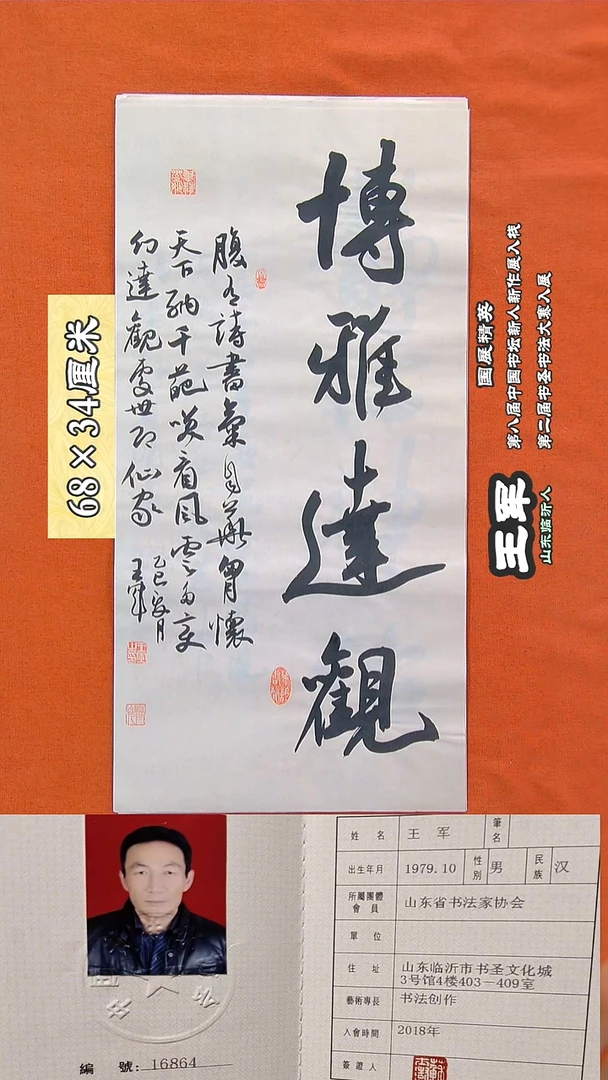 博雅達觀
腹有詩書氣自華胷懷
天下納千葩笑看風雲多變
幻達觀處世即仙家
乙巳年月
王軍
68×34厘米
国展精英
第八届中国书坛新人新作展入栈
第二届书圣书法大赛入展
王军
山东临沂人
編 號: 16864
姓 名 王 军 筆名
出生年月 1979.10 性別 男 民族 汉
所屬團體會員 山东省书法家协会
單 位
住 址 山东临沂市书圣文化城
3号馆4楼403－409室
藝術專長 书法创作
入會時間 2018年
簽證人